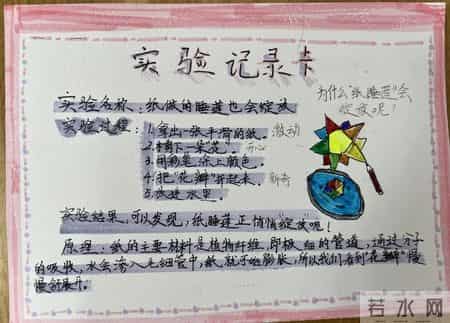 实验记录卡
为什么"纸睡莲"会
绽放呢？
实验名称：纸做的睡莲也会绽放
实验过程：1.拿出一张手滑的纸。激动
2.描下一朵花。开心
3.用彩笔涂上颜色。
4.把"花瓣"折起来。新奇
5.放进水里。
实验结果：可以发现，纸睡莲正悄悄"绽放"呢！
原理：纸的主要材料是植物纤维，即极细的管道，通过分子
的吸收，水会渗入毛细管中，纸就开始膨胀，所以我们看到"花瓣"慢
慢舒展开。
若水网